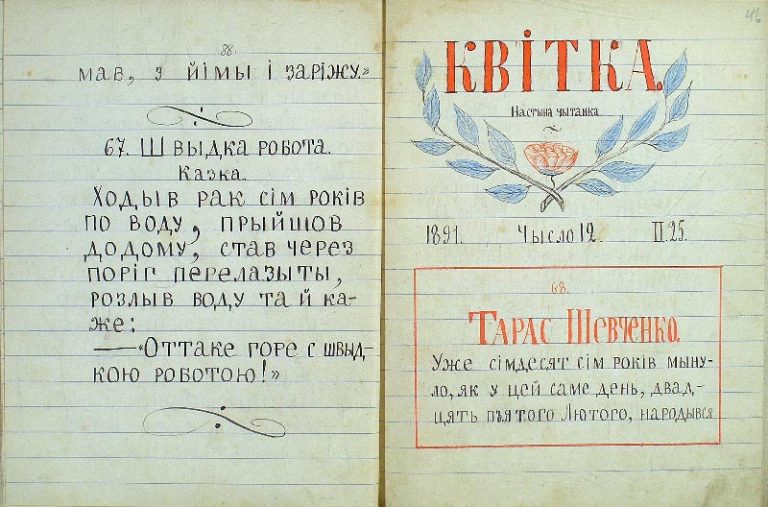 88.
мав, з йімы і заріжу.»
67. Швыдка робота.
Казка.
Ходыв рак сім років
по воду, прыйшов
додому, став через
поріг перелазыты,
розлыв воду та й ка-
же:
—«Оттаке горе с швыд-
кою роботою!»
46
КВІТКА.
Настына чытанка.
1891. Чысло 12. II.25.
68.
Тарас Шевченко.
Уже сімдесят сім років мыну-
ло, як у цей саме день, двад-
цять пъятого Лютого, народывся